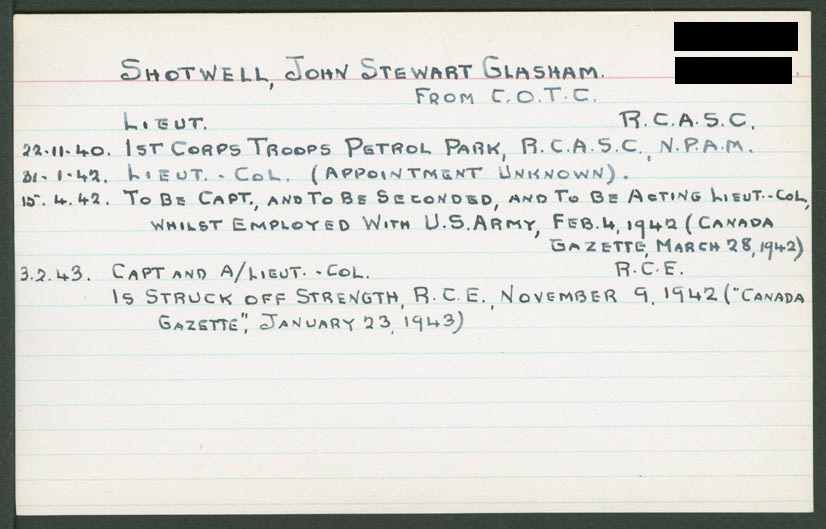 SHOTWELL, JOHN STEWART GLASHAM.
FROM C.O.T.C.
LIEUT. R.C.A.S.C.
22.11.40. 1ST CORPS TROOPS PETROL PARK, R.C.A.S.C., N.P.A.M.
31.1.42. LIEUT.-COL. (APPOINTMENT UNKNOWN).
15.4.42. TO BE CAPT., AND TO BE SECONDED, AND TO BE ACTING LIEUT.-COL,
WHILST EMPLOYED WITH U.S. ARMY, FEB. 4, 1942 (CANADA
GAZETTE, MARCH 28, 1942)
3.2.43. CAPT AND A/LIEUT.-COL. R.C.E.
IS STRUCK OFF STRENGTH, R.C.E., NOVEMBER 9, 1942 ("CANADA
GAZETTE", JANUARY 23, 1943)